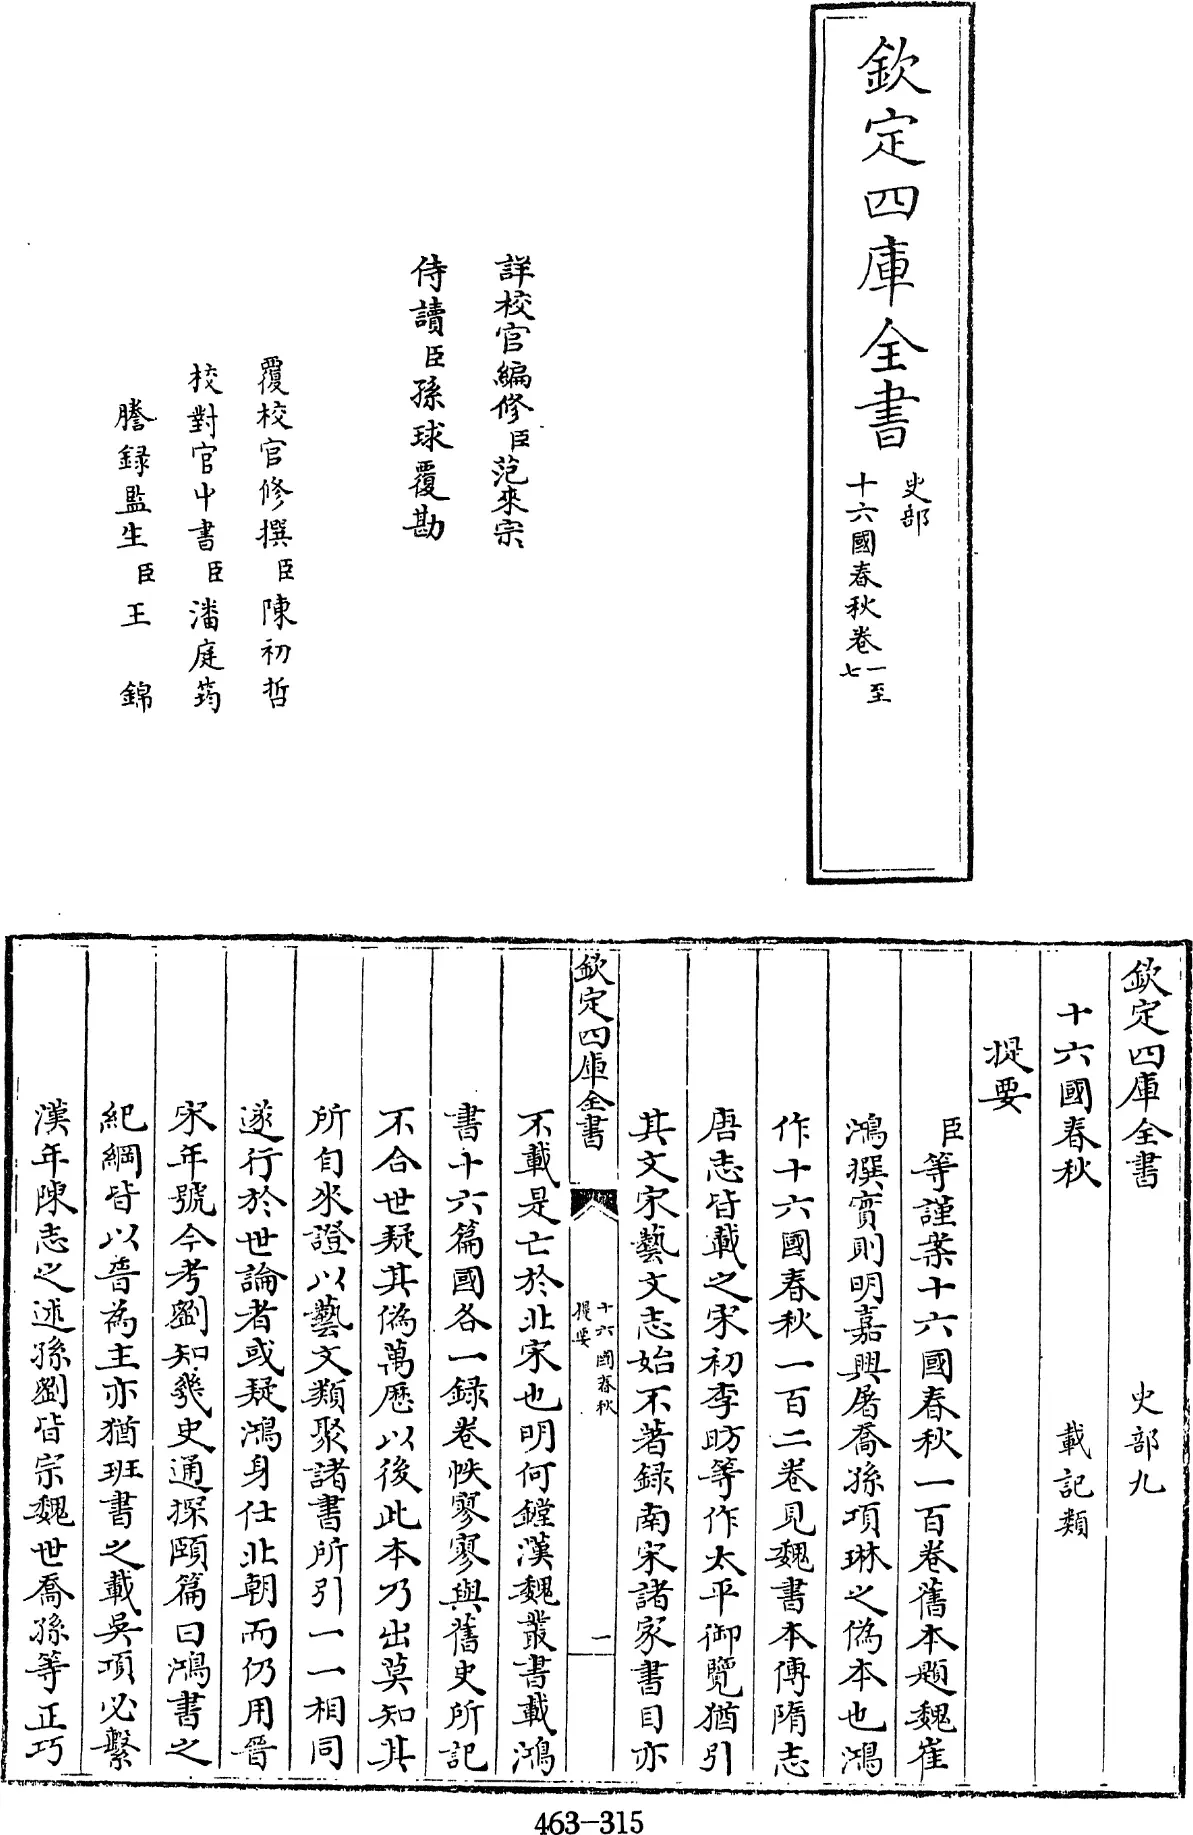 欽定四庫全書
史部
十六國春秋卷一至七
詳校官編修臣范來宗
侍讀臣孫球覆勘
覆校官修撰臣陳初哲
校對官中書臣潘庭筠
謄錄監生臣王錦
欽定四庫全書
史部九
十六國春秋
載記類
提要
臣等謹案十六國春秋一百卷舊本題魏崔
鴻撰實則明嘉興屠喬孫項琳之偽本也鴻
作十六國春秋一百二卷見魏書本傳隋志
唐志皆載之宋初李昉等作太平御覽猶引
其文宋藝文志始不著録南宋諸家書目亦
欽定四庫全書
十六國春秋
提要
一
不載是亡於北宋也明何鏜漢魏叢書載鴻
書十六篇國各一録卷帙寥寥與舊史所記
不合世疑其偽萬厯以後此本乃出莫知其
所自來證以藝文類聚諸書所引一一相同
遂行於世論者或疑鴻身仕北朝而仍用晉
宋年號今考劉知幾史通探賾篇曰鴻書之
紀綱皆以晉為主亦猶班書之載吳項必繫
漢年陳志之述孫劉皆宗魏世喬孫等正巧
463-315